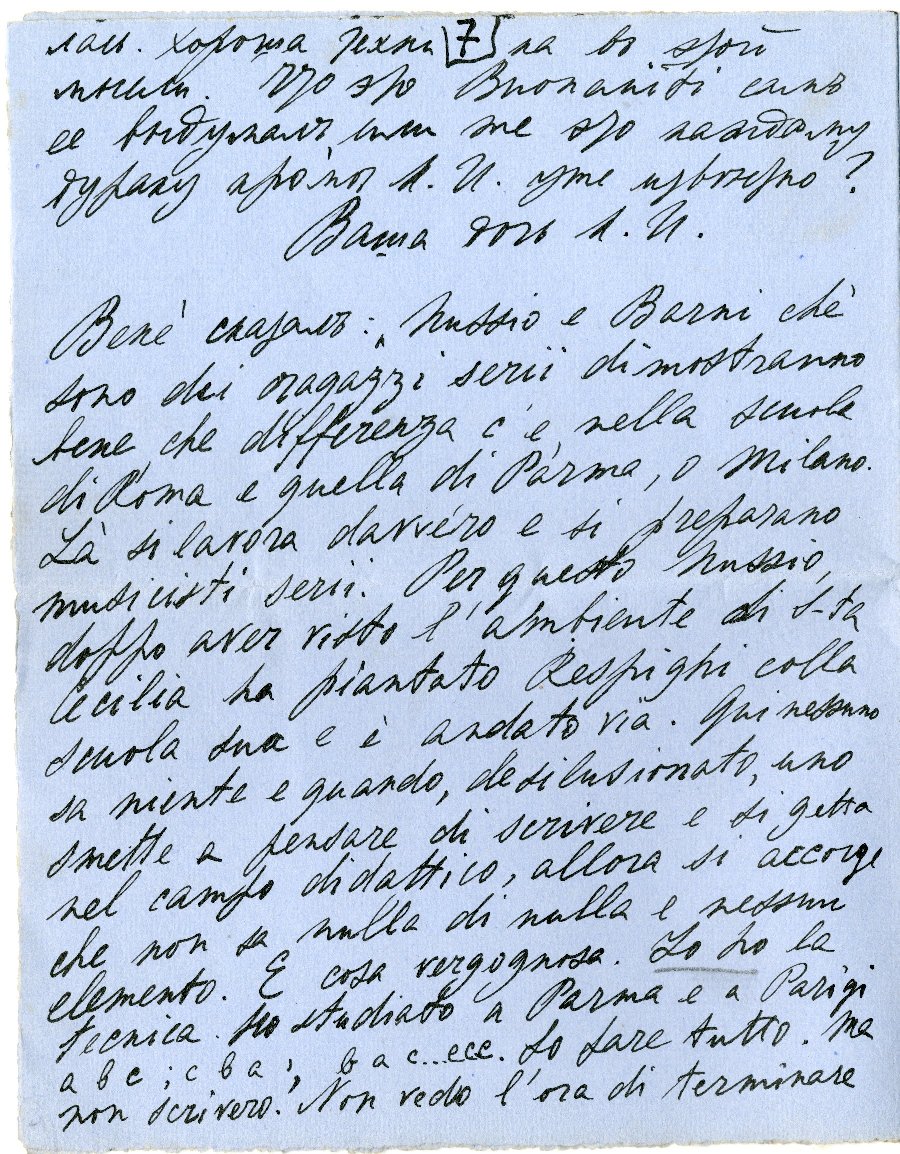 лаш. Хороша техни 7 ка во этой
мысли. Что это Buonaiuti самъ
ее выдумалъ, или же это каждому
дураку кромѣ Л. И. уже известно?
Ваша дочь Л. И.
Bene сказалъ: „Nussio e Barni chè
sono dei ragazzi serii dimostranno
bene che differenza c'è nella scuola
di Roma e quella di Parma, o Milano.
Là si lavora davvero e si preparano
musicisti serii. Per questo Nussio,
doppo aver visto l'ambiente di S-ta
Cecilia ha piantato Respighi colla
scuola sua e è andato via. Qui nessuno
sa niente e quando, desilusionato, uno
smette a pensare di scrivere e si getta
nel campo didattico, allora si accorge
che non sa nulla di nulla e nessun
elemento. E cosa vergognosa. Io ho la
tecnica. Ho studiato a Parma e a Parigi
a b c ; c b a ; b a c... ecc. So fare tutto. Ma
non scrivero! Non vedo l'ora di terminare